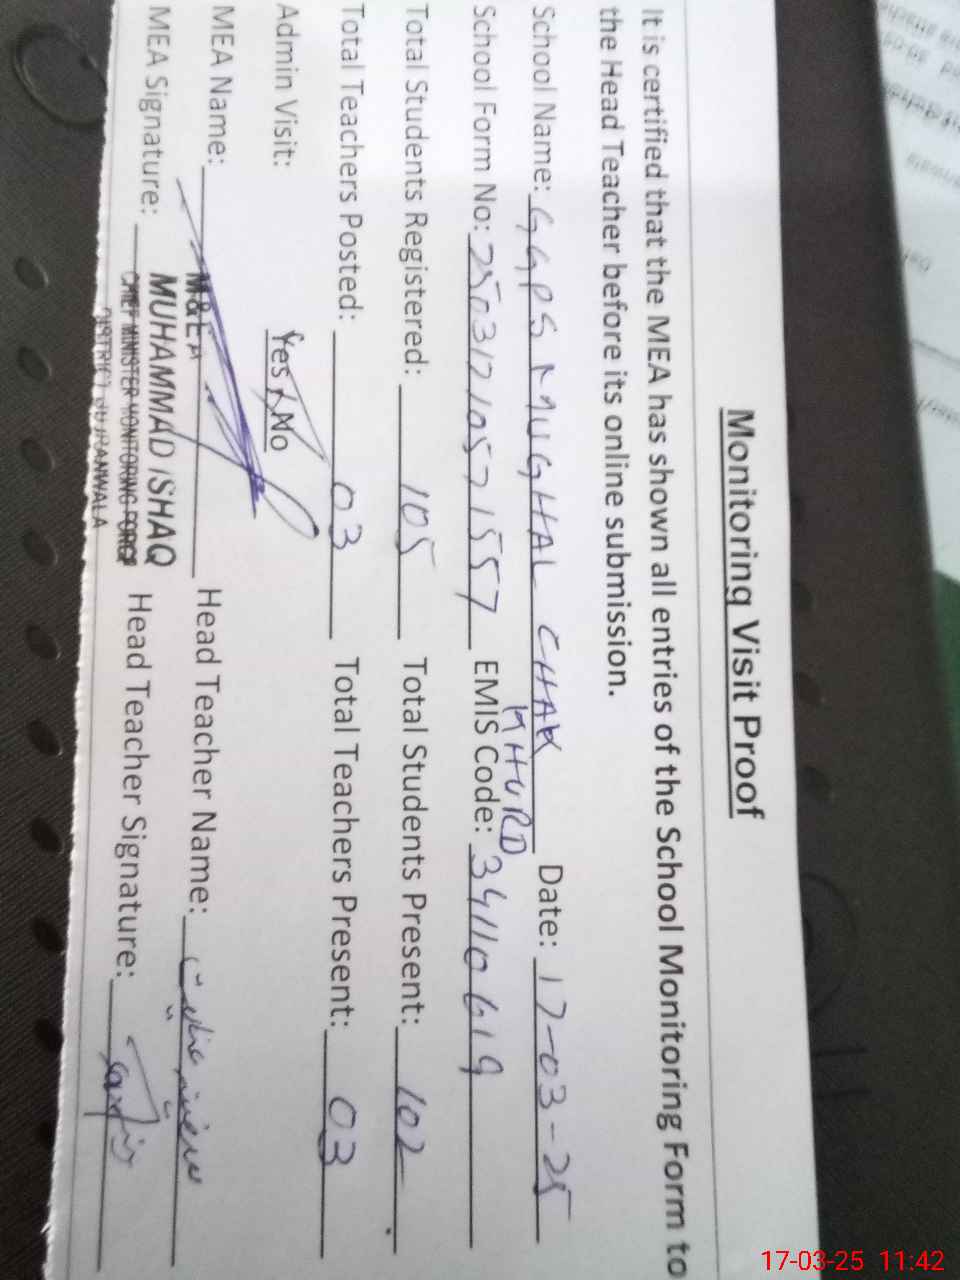 Monitoring Visit Proof
It is certified that the MEA has shown all entries of the School Monitoring Form to
the Head Teacher before its online submission.
School Name: GGPS MUGHAL CHAK Date: 17-03-25
KHURD
School Form No: 25031710571557 EMIS Code: 34110619
Total Students Registered: 105 Total Students Present: 102
Total Teachers Posted: 03 Total Teachers Present: 03
Admin Visit: Yes / No
MEA Name: Head Teacher Name:
M&EA
MEA Signature: MUHAMMAD ISHAQ Head Teacher Signature:
CHIEF MINISTER MONITORING FORCE
DISTRICT GUJRANWALA
17-03-25 11:42